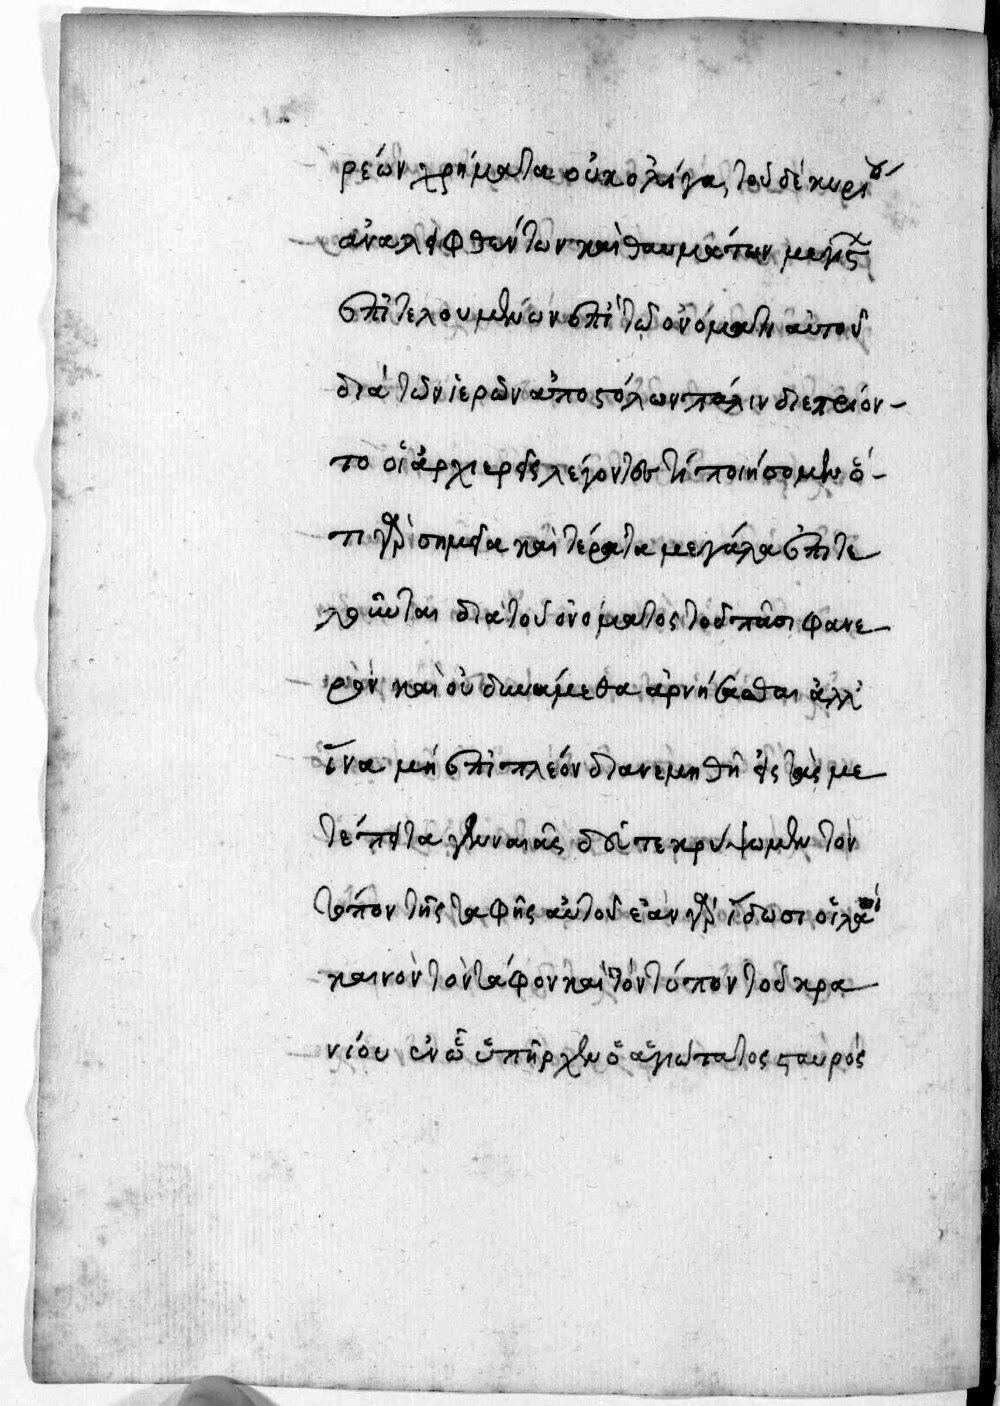 ρεών χρήματα οὐκ ὀλίγα, τοῦ δὲ κυρίου
ἀναλειφθέντων καὶ θαυμάτων μεγίς
ἐπιτελουμένων ἐπὶ τῷ ὀνόματι αὐτοῦ
διὰ τῶν ἱερῶν ἀποστόλων πάλιν διεπρίον-
το οἱ ἀρχιερεῖς λέγοντες τί ποιήσομεν ὅ-
τι γὰρ σημεῖα καὶ τέρατα μεγάλα ἐπιτε
λοῦνται διὰ τοῦ ὀνόματος τοῦ πᾶσι φανε
ρὸν καὶ οὐ δυνάμεθα ἀρνήσασθαι ἀλλ'
ἵνα μὴ ἐπὶ πλέον διανεμηθῇ εἰς τὰς με
τέπειτα γενεὰς δεῦτε κρύψωμεν τὸν
τόπον τῆς ταφῆς αὐτοῦ ἐὰν γὰρ ἴδωσι οἱ λαοὶ
καινὸν τὸν τάφον καὶ τὸν τόπον τοῦ κρα
νίου ἐν ᾧ ὑπῆρχεν ὁ ἁγιώτατος σταυρὸς